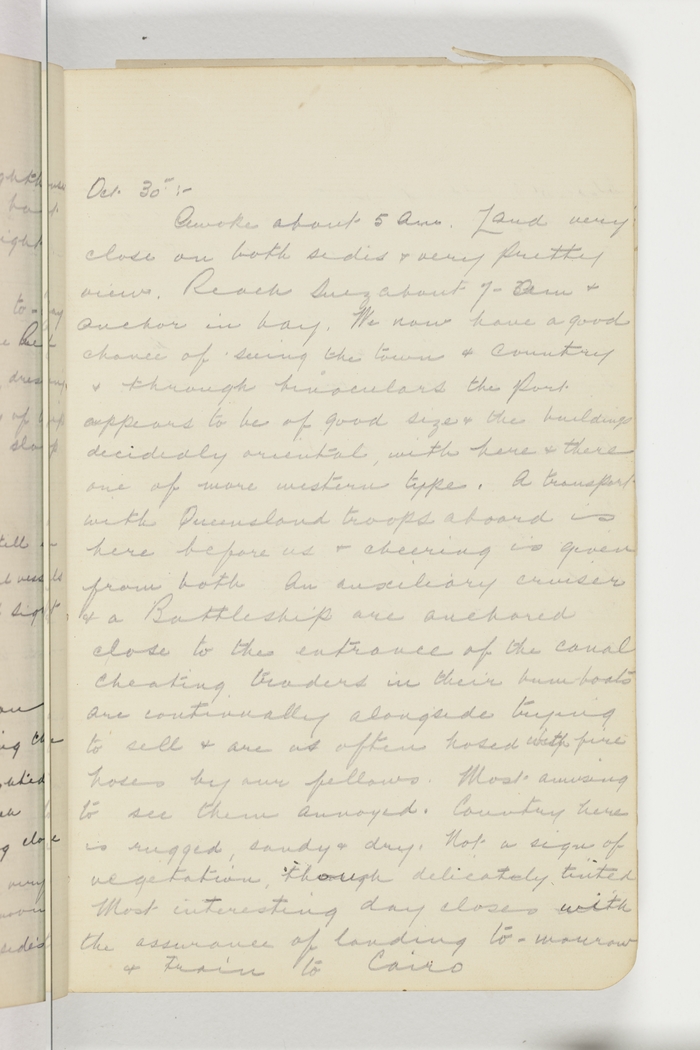 Oct. 30th :-
Awoke about 5 am. Land very
close on both sides & very pretty
view. Reach Suez about 7- am &
anchor in bay. We now have a good
chance of seeing the town & country
& through binoculars the port
appears to be of good size & the buildings
decidedly oriental, with here & there
one of more western type. A transport
with Queensland troops aboard is
here before us & cheering is given
from both An auxiliary cruiser
& a Battleship are anchored
close to the entrance of the canal
Cheating traders in their bumboats
are continually alongside trying
to sell & are as often hosed with fire
hoses by our fellows. Most amusing
to see them annoyed. Country here
is rugged, sandy & dry. Not a sign of
vegetation, though delicately tinted
Most interesting day closes with
the assurance of landing to-morrow
& train to Cairo